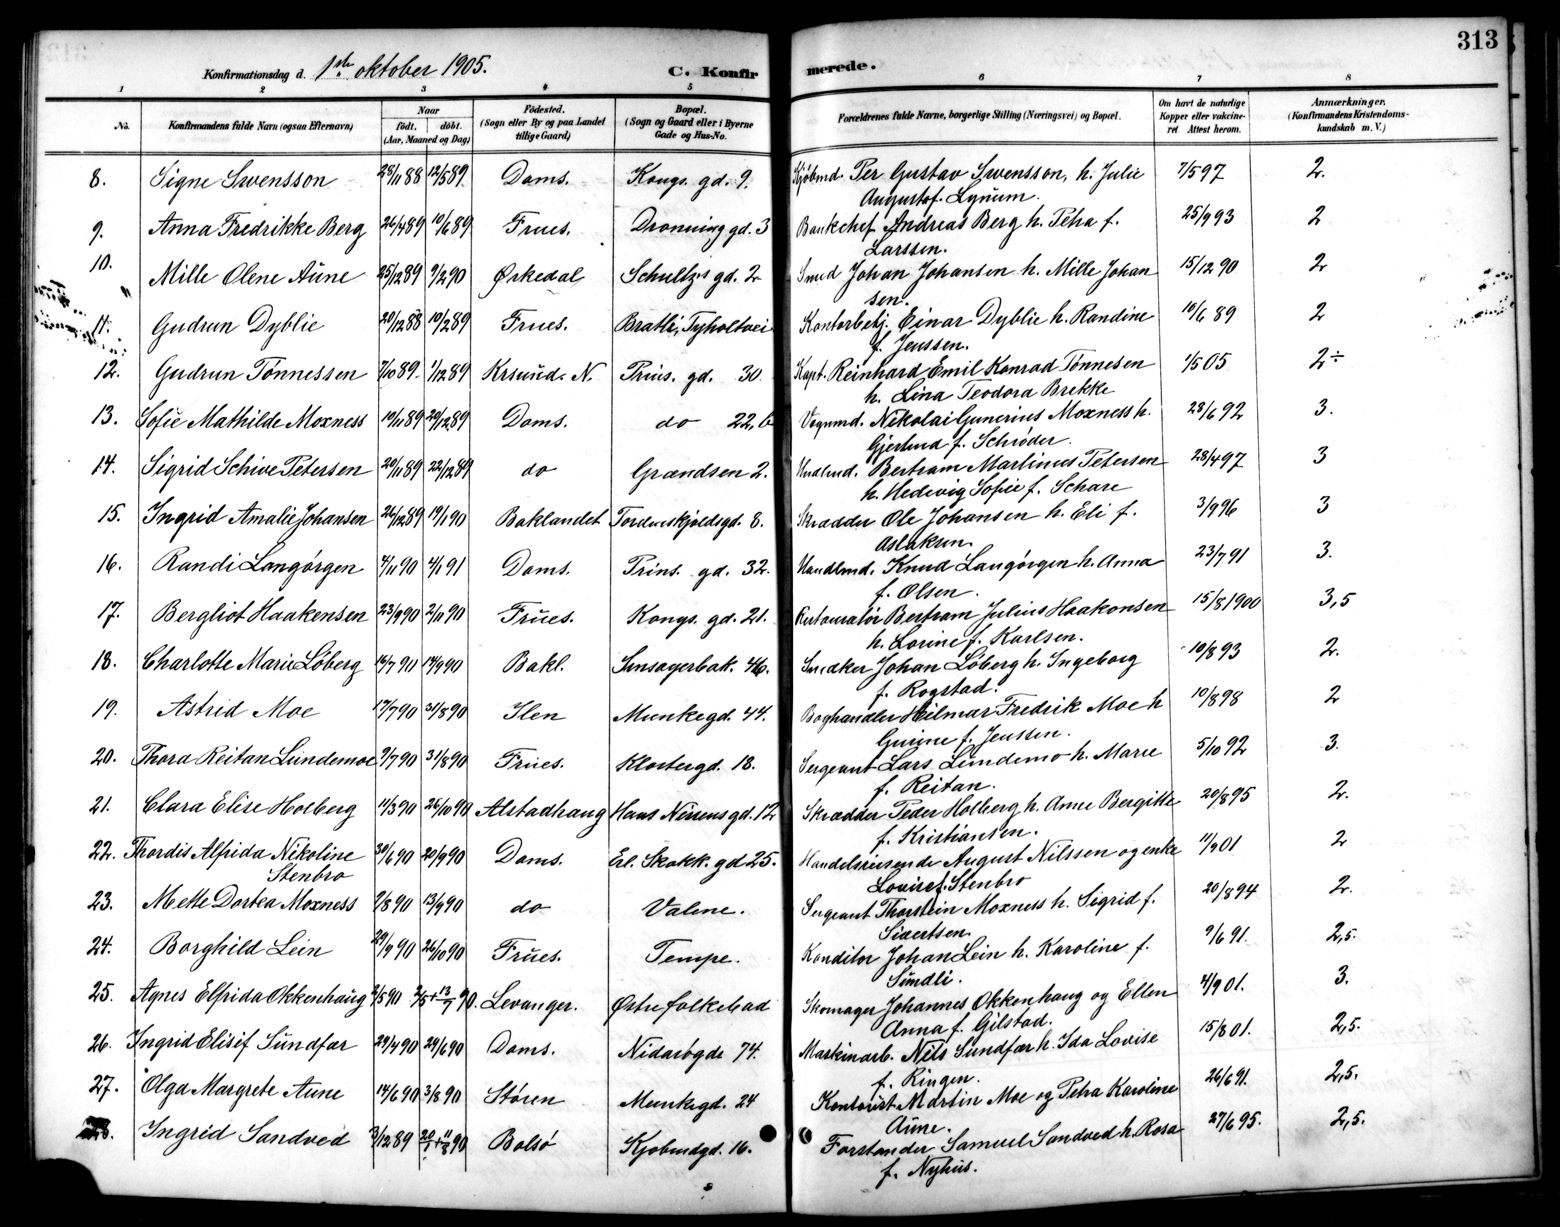 313
Konfirmationsdag d. 1ste oktober 1905. C. Konfirmerede.
1 2 3 4 5 6 7 8
No. Konfirmandens fulde Navn (ogsaa Efternavn) Naar født. døbt. (Aar, Maaned og Dag) Fødested. (Sogn eller By og paa Landet tillige Gaard) Bopæl. (Sogn og Gaard eller i Byerne Gade og Hus-No. Forældrenes fulde Navne, borgerlige Stilling (Næringsvei) og Bopæl. Om havt de naturlige Kopper eller vakcineret Attest herom. Anmærkninger. (Konfirmandens Kristendomskundskab m. V.)
8. Signe Swensson 28/11 88 12/5 89 Doms. Kongs. gd. 9. Kjøbmd. Per Gustav Swensson, h. Julie 7/5 97 2.
Augusta f. Lynum.
9. Anna Fredrikke Berg 26/4 89 10/6 89 Frues. Dronning gd. 3 Bankchef Andreas Berg h. Petra f. 25/9 93 2
Larssen.
10. Mille Olene Aune 25/12 89 9/2 90 Ørkedal Schultzs gd. 2 Smed Johan Johansen h. Mille Johan 15/12 90 2
sen.
11. Gudrun Dyblie 20/12 88 10/2 89 Frues. Bratli, Tyholtvei Kontorbetj. Einar Dyblie h. Randine 10/6 89 2
f. Jenssen.
12. Gudrun Tønnessen 7/10 89. 1/12 89 Krsund. N. Prins. gd. 30 Kapt. Reinhard Emil Konrad Tønnesen 1/5 05 2÷
h. Lina Teodora Brekke
13. Sofie Mathilde Moxness 10/11 89 29/12 89 Doms. do 22, b Vognmd. Nikolai Gunerius Moxness h. 28/6 92 3.
Gjertina f. Schrøder.
14. Sigrid Schive Petersen 20/11 89 22/12 89 do Grændsen 2. Hndlmd. Bertram Martinus Petersen 28/4 97 3
h. Hedevig Sofie f. Schare
15. Ingrid Amalie Johansen 26/12 89 19/1 90 Baklandet Tordenskjoldsgd. 8. Skrædder Ole Johansen h. Eli f. 3/9 96 3
Aslaksen.
16. Randi Langørgen 4/11 90 4/1 91 Doms. Prins. gd. 32. Handlmd. Knud Langørgen h. Anna 23/7 91 3.
f. Olsen.
17. Bergliot Haakensen 23/9 90 2/11 90 Frues. Kongs. gd. 21. Restauratør Bertram Julius Haakonsen 15/8 1900 3,5
h. Lorine f. Karlsen.
18. Charlotte Marie Løberg 14/7 90 14/9 90 Bakl. Sinsagerbak. 46. Snedker Johan Løberg h. Ingeborg 10/8 93 2.
f. Rogstad.
19. Astrid Moe 17/7 90 31/8 90 Ilen Munkegd. 44. Boghandler Hilmar Fredrik Moe h 10/8 98 2
Gurine f. Jenssen.
20. Thora Reitan Lundemoe 9/7 90 31/8 90 Frues. Klostergd. 18. Sergeant Lars Lundemo h. Marie 5/10 92 3.
f. Reitan.
21. Clara Elise Holberg 11/3 90 26/10 90 Alstadhaug Hans Nissens gd. 12 Skrædder Peder Holberg h. Anne Bergitte 20/8 95 2.
f. Kristiansen.
22. Thordis Alfrida Nikoline 30/6 90 20/9 90 Doms. Erl. Skakk. gd 25. Handelsreisende August Nilssen og enke 11/9 01 2
Stenbro Lovise f. Stenbro
23. Mette Dortea Moxness 9/8 90 13/9 90 do Valene. Sergeant Thorstein Moxness h. Sigrid f. 20/8 94 2.
Sivertsen.
24. Borghild Lein 29/9 90 26/10 90 Frues. Tempe. Konditor Johan Lein h. Karoline f. 9/6 91. 2,5.
Sundli.
25. Agnes Elfrida Okkenhaug 2/5 90 2/5 + 13/7 90. Levanger. Østre folkebad Skomager Johannes Okkenhaug og Ellen 4/9 01. 3.
Anna f. Gilstad.
26. Ingrid Elisif Sundfær 29/4 90 29/6 90 Doms. Nidarøgde 74. Maskinarb. Nils Sundfær h. Ida Lovise 15/8 01. 2,5.
f. Ringen.
27. Olga Margrete Aune 14/6 90 3/8 90 Støren Munkegd. 24 Kontorist Martin Moe og Petra Karoline 26/6 91. 2,5.
Aune.
28. Ingrid Sandved 3/12 89 20/7 + 11/8 90 Bolsø Kjøbmdgd. 16. Forstander Samuel Sandved h. Rosa 27/6 95. 2,5.
f. Nyhus.